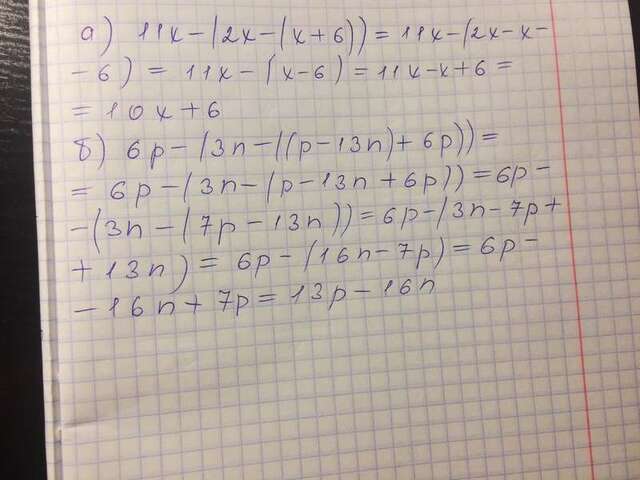 а) 11x-(2x-(x+6))=11x-(2x-x-
-6)=11x-(x-6)=11x-x+6=
=10x+6
б) 6p-(3n-((p-13n)+6p))=
=6p-(3n-(p-13n+6p))=6p-
-(3n-(7p-13n))=6p-(3n-7p+
+13n)=6p-(16n-7p)=6p-
-16n+7p=13p-16n